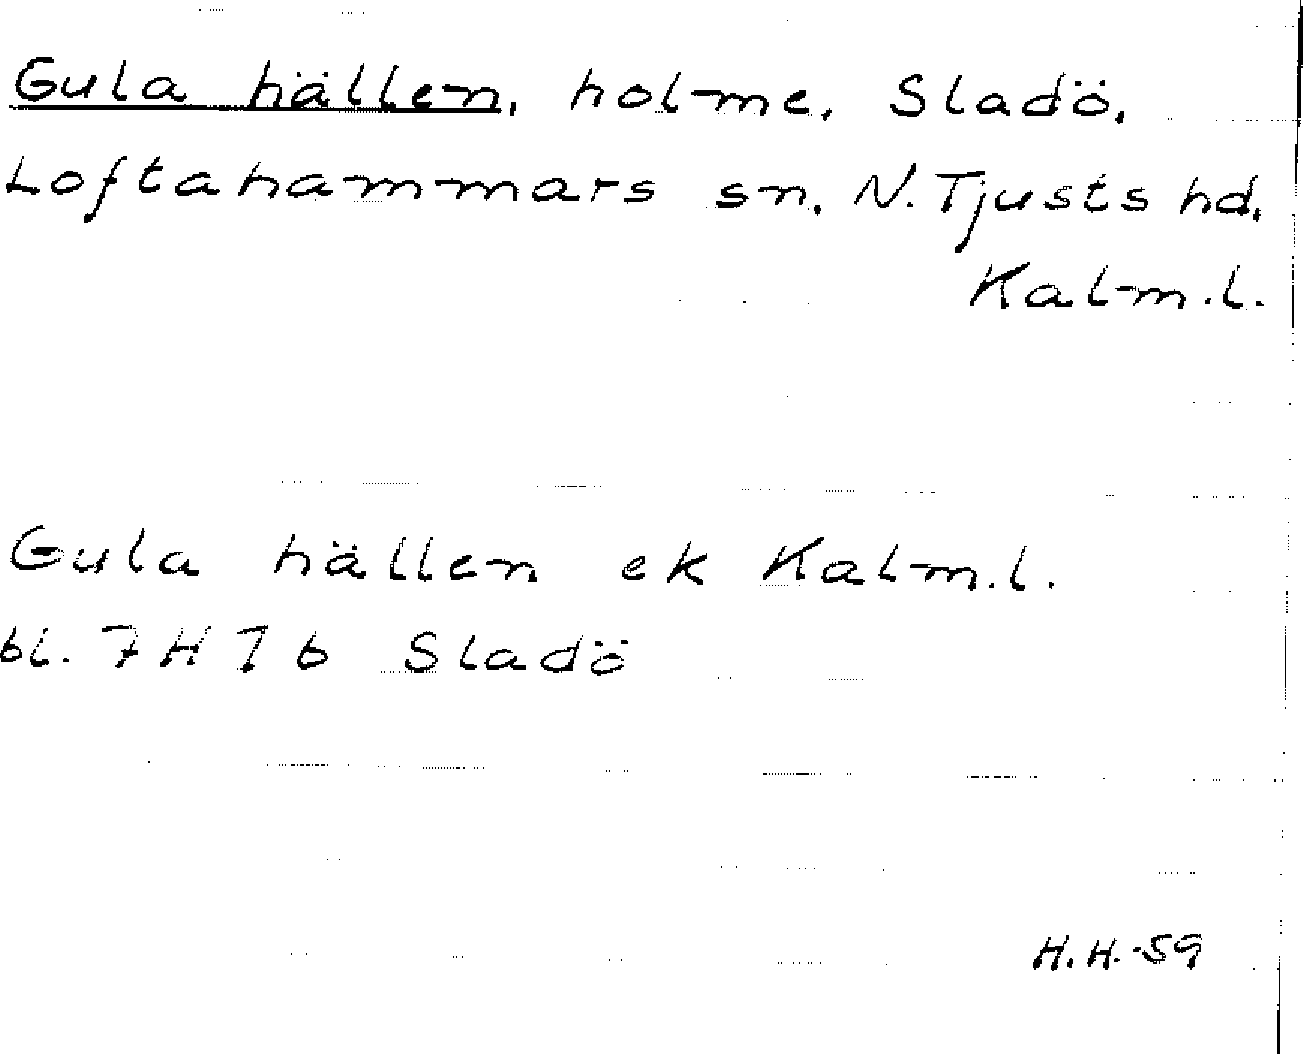 Gula hällen, holme, Sladö,
Loftahammars sn, N. Tjusts hd,
Kalm.l.
Gula hällen ek Kalm.l.
bl. 7H 7b Sladö
H.H.-59